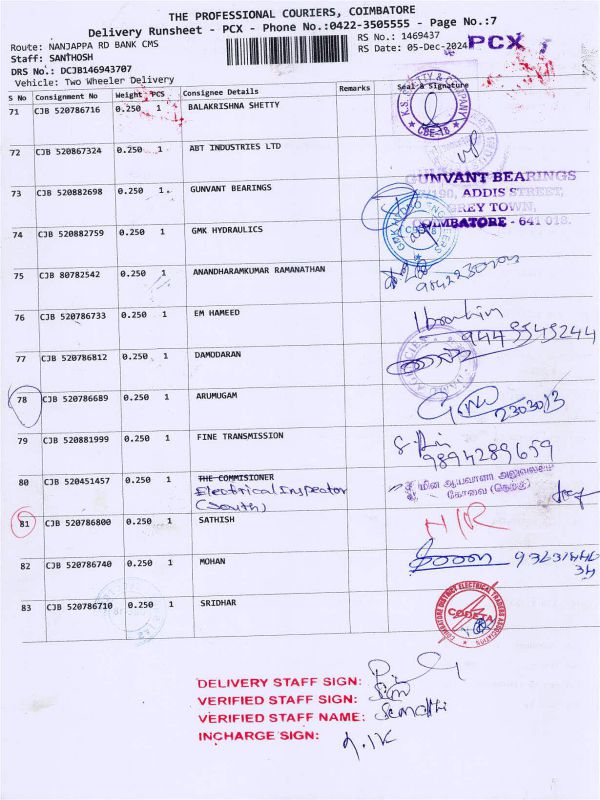 THE PROFESSIONAL COURIERS, COIMBATORE
Delivery Runsheet - PCX - Phone No.:0422-3505555 - Page No.:7
Route: NANJAPPA RD BANK CMS
RS No.: 1469437
Staff: SANTHOSH
RS Date: 05-Dec-2024
PCX
DRS No.: DCJB146943707
Vehicle: Two Wheeler Delivery
S No Consignment No Weight PCS Consignee Details Remarks Seal & Signature
71 CJB 520786716 0.250 1 BALAKRISHNA SHETTY
CBE-18
72 CJB 520867324 0.250 1 ABT INDUSTRIES LTD
73 CJB 520882698 0.250 1 GUNVANT BEARINGS
GUNVANT BEARINGS
ADDIS STREET,
GREY TOWN,
COIMBATORE - 641 018.
74 CJB 520882759 0.250 1 GMK HYDRAULICS
75 CJB 80782542 0.250 1 ANANDHARAMKUMAR RAMANATHAN
76 CJB 520786733 0.250 1 EM HAMEED
Ibrahim
77 CJB 520786812 0.250 1 DAMODARAN
78 CJB 520786689 0.250 1 ARUMUGAM
79 CJB 520881999 0.250 1 FINE TRANSMISSION
9894289659
80 CJB 520451457 0.250 1 THE COMMISIONER
Electrical Inspector
(South)
மின ஆய்வாளர் அலுவலகம்
கோவை (தெற்கு)
81 CJB 520786800 0.250 1 SATHISH
82 CJB 520786740 0.250 1 MOHAN
83 CJB 520786710 0.250 1 SRIDHAR
COIMBATORE DISTRICT ELECTRICAL TRADERS ASSOCIATION
CODETA
DELIVERY STAFF SIGN:
VERIFIED STAFF SIGN:
VERIFIED STAFF NAME:
INCHARGE SIGN: